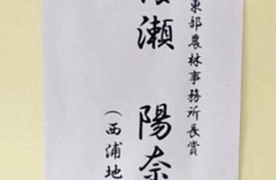 東部農林事務所長賞
瀬 陽奈
(西浦地